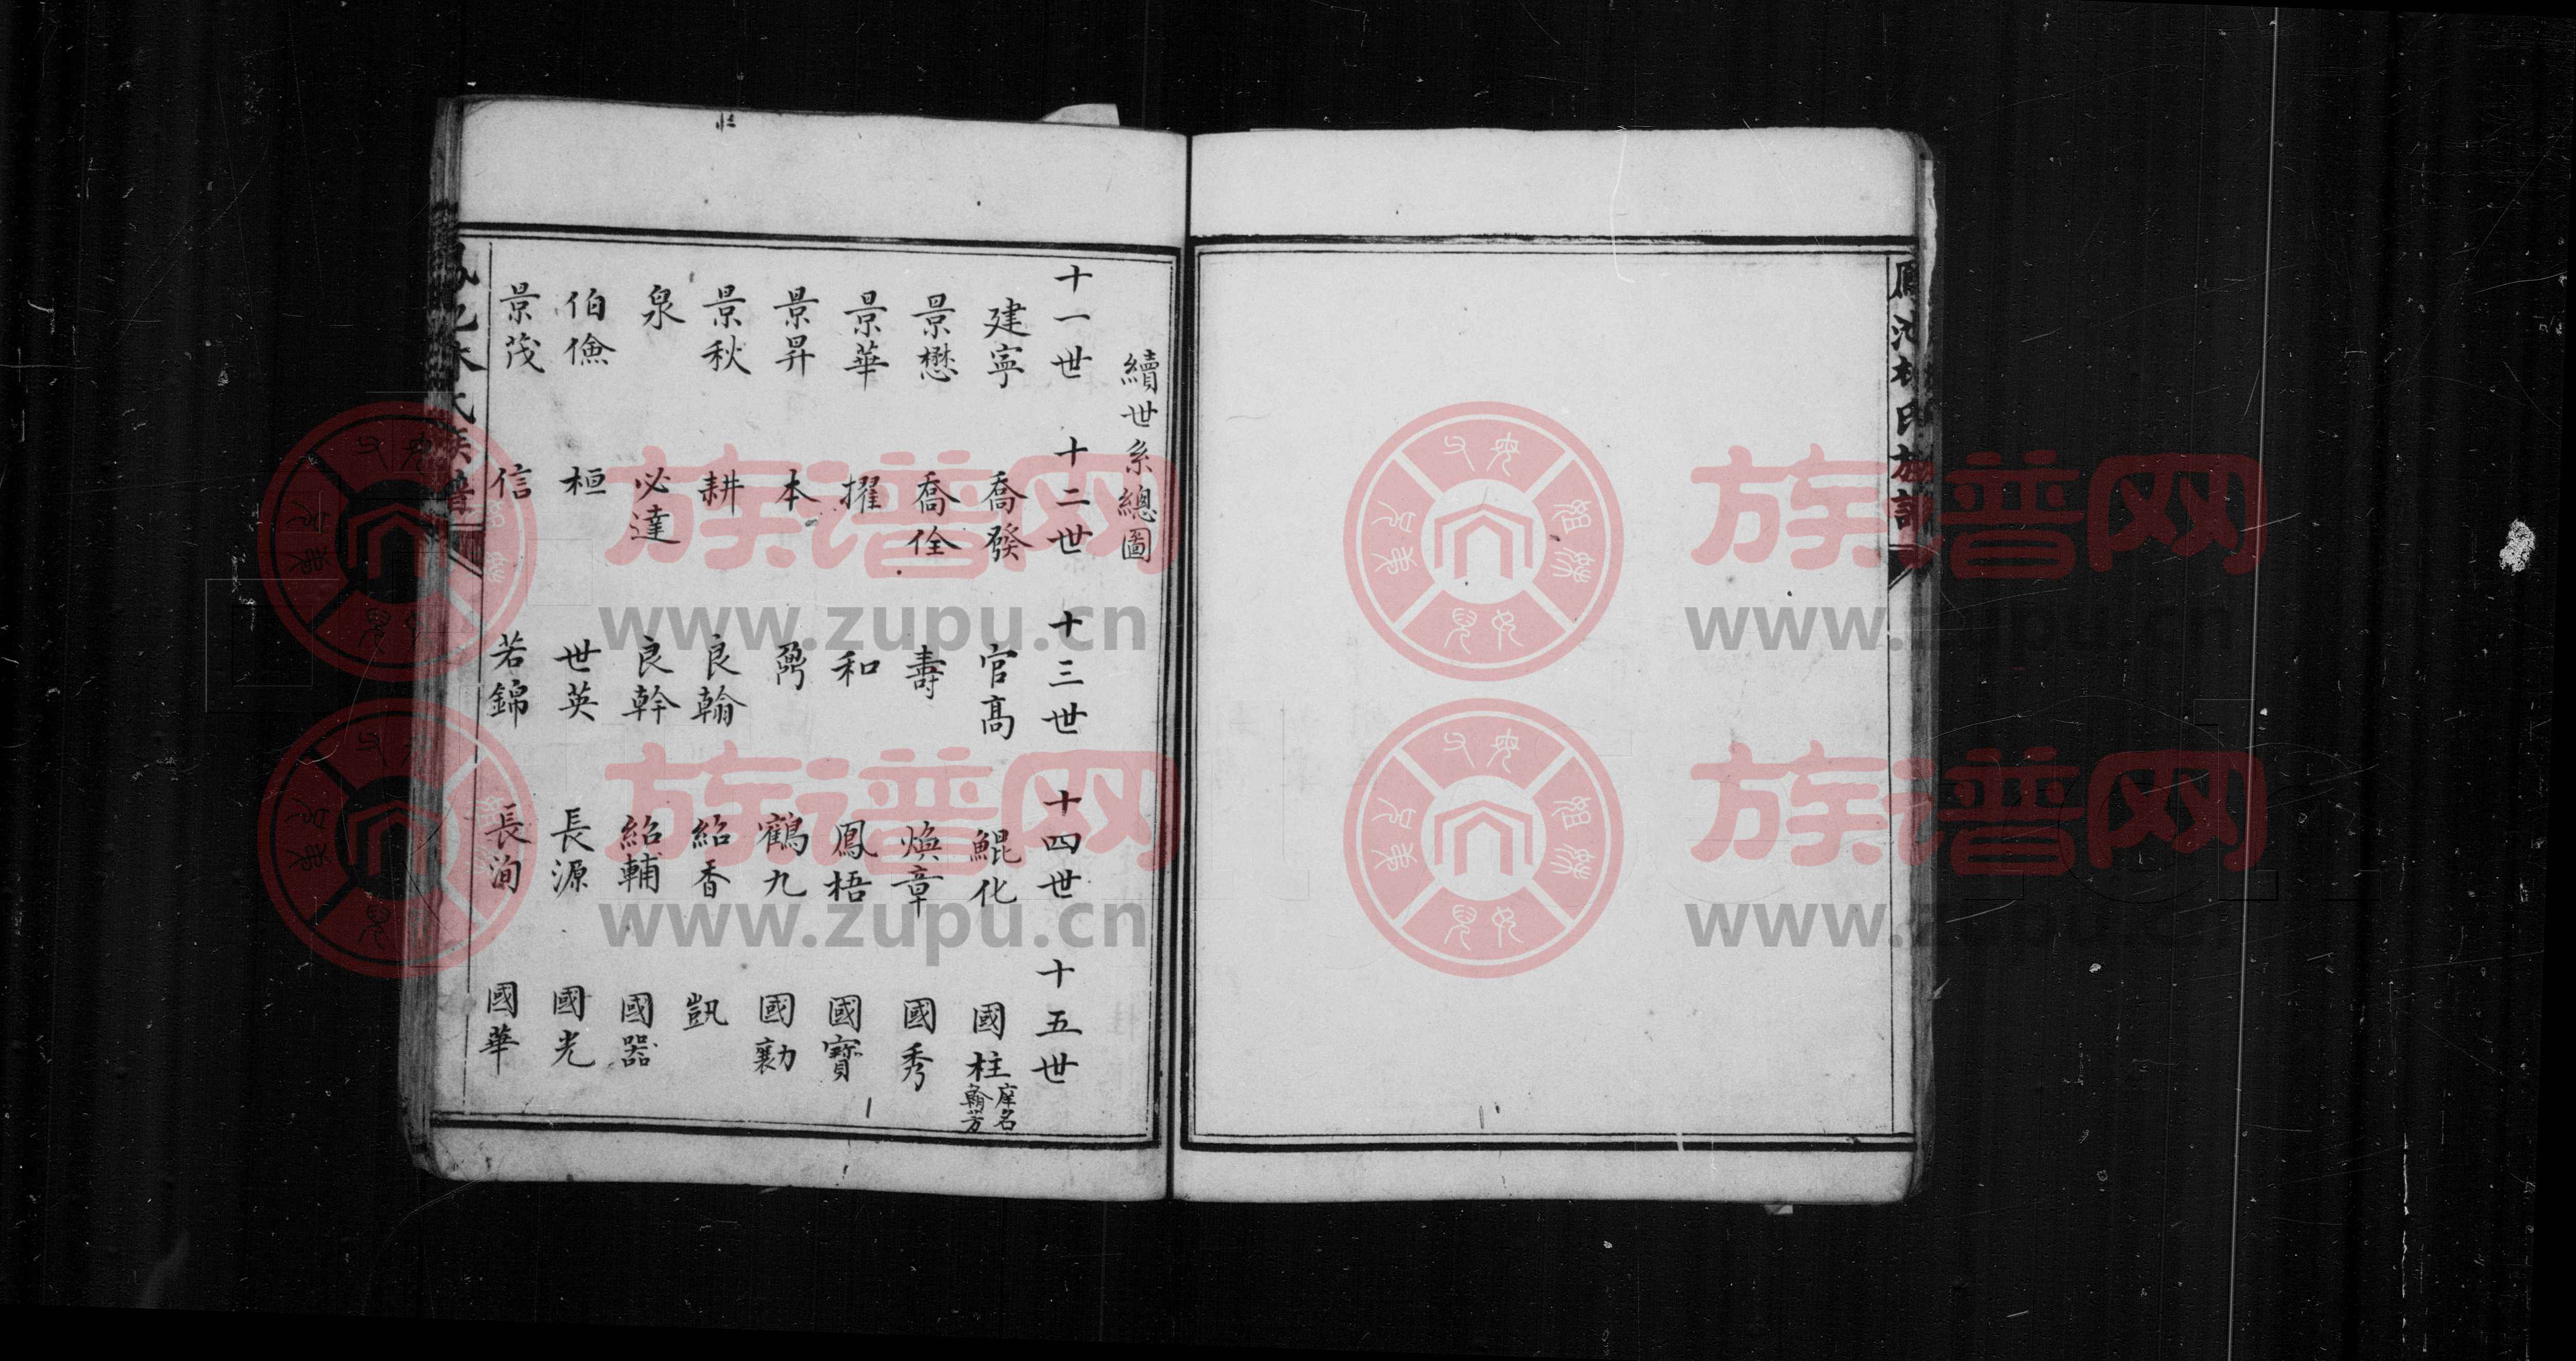 續世系總圖
十一世 十二世 十三世 十四世 十五世
建寧 喬發 官高 鯤化 國柱 庠名翰芳
景懋 喬佺 壽 煥章 國秀
景華 擢 和 鳳梧 國寶
景昇 本 鼐 鶴九 國勷
景秋 耕 良翰 紹香 凱
泉 必達 良幹 紹輔 國器
伯儉 桓 世英 長源 國光
景茂 信 若錦 長洵 國華
族谱网
www.zupu.cn
族谱网
www.zupu.cn
族谱网
www.zupu.cn
族谱网
www.zupu.cn